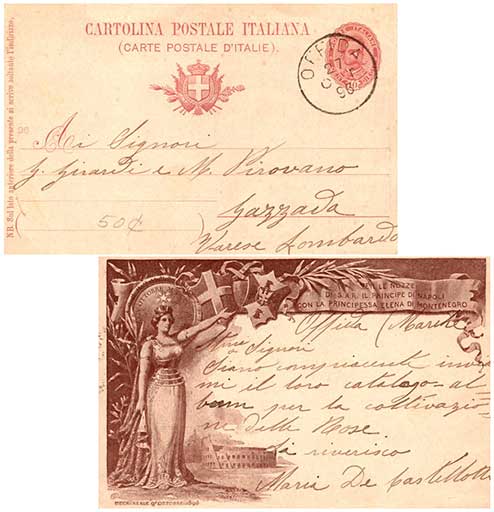 CARTOLINA POSTALE ITALIANA
(CARTE POSTALE D'ITALIE).
OFFIDA
NB. Sul lato anteriore della presente si scrive soltanto l'indirizzo.
96
Ai Signori
G. Girardi e M. Pirovano
Gazzada
50¢
Varese Lombardo
PER LE NOZZE
DI S.A.R. IL PRINCIPE DI NAPOLI
CON LA PRINCIPESSA ELENA DI MONTENEGRO
Offida (Marche
Signori
Siano compiacente invi
mi il loro catalogo al
bum per la coltivazio
ne delle Rose.
La riverisco
Maria De Castellotti